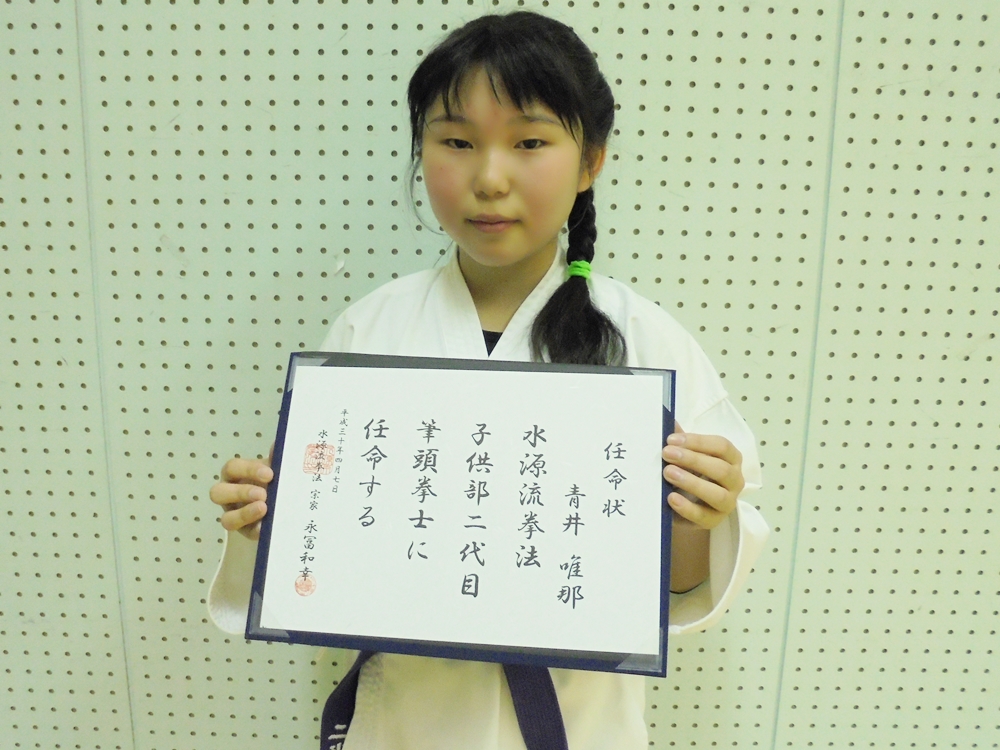 任命状
青井 唯那
水源流拳法
子供部二代目
筆頭拳士に
任命する
平成三十年四月七日
水源流拳法 宗家 永冨和幸